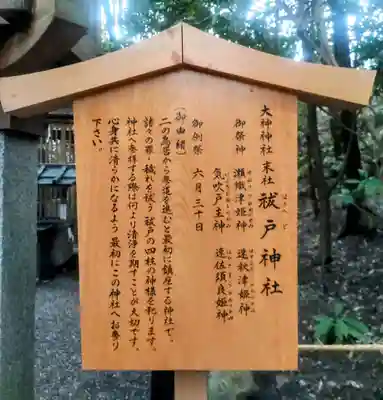 大神神社 末社 祓戸神社
はらへど
御祭神 瀬織津姫神 速秋津姫神
気吹戸主神 速佐須良姫神
御例祭 六月三十日
（御由緒）
二の鳥居から参道を進むと最初に鎮座する神社で、
諸々の罪・穢れを祓う祓戸の四柱の神様を祀ります。
神社に参拝する際は何より清浄を期すことが大切です。
心身共に清らかになるよう最初にこの神社へお参り
下さい。